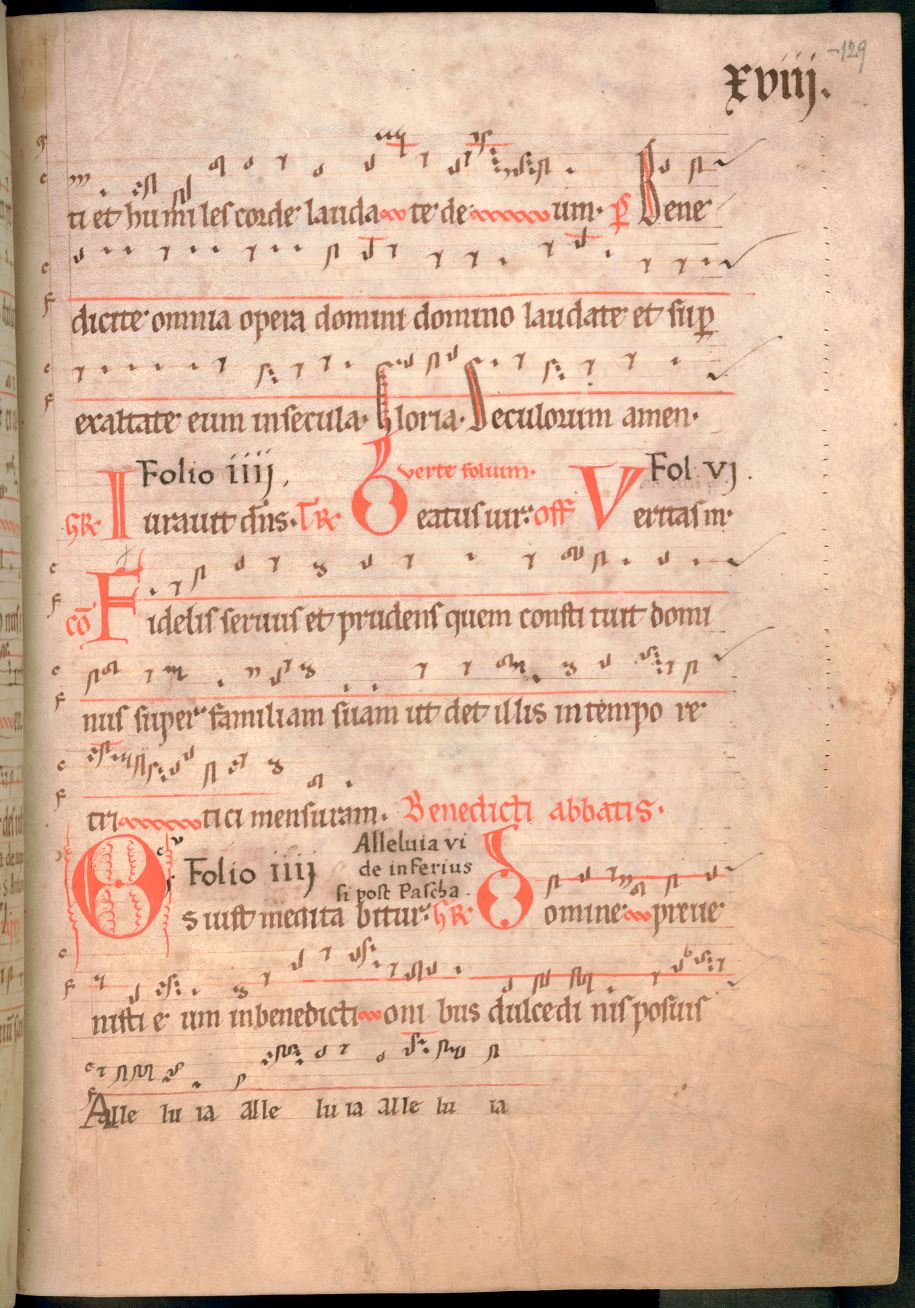 -129
xviij.
ti et humiles corde lauda te de um. P̄s Bene
dicite omnia opera domini domino laudate et sup̄
exaltate eum insecula. Gloria. Seculorum amen.
Folio iiij. verte folium. Fol vj.
GR Iurauit dn̄s. TR Beatus uir. off Veritas m̄.
cō Fidelis seruus et prudens quem consti tuit domi
nus super familiam suam ut det illis in tempo re
tri tici mensuram. Benedicti abbatis.
Alleluia vi
Folio iiij de inferius
si post Pascha.
Os iusti medita bitur. GR Domine preue
nisti e um inbenedicti oni bus dulcedi nis posuis
Alle lu ia alle lu ia alle lu ia